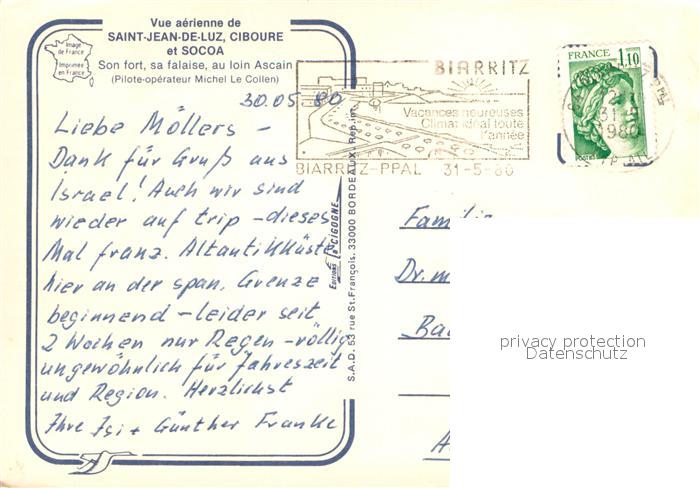 Vue aérienne de
SAINT-JEAN-DE-LUZ, CIBOURE
et SOCOA
Son fort, sa falaise, au loin Ascain
(Pilote-opérateur Michel Le Collen)
Image
de France
Imprimée
en France
30.05 80
Liebe Möllers –
Dank für Gruß aus
Israel! Auch wir sind
wieder auf trip – dieses
Mal franz. Altantikküste
hier an der span. Grenze
beginnend – leider seit
2 Wochen nur Regen – völlig
ungewöhnlich für Jahreszeit
und Region. Herzlichst
Ihre Isi + Günther Franke
Editions la CIGOGNE
S.A.D. 53 rue St.François. 33000 BORDEAUX. Rep.int.
BIARRITZ
Vacances heureuses
Climat idéal toute
l'année
BIARRITZ-PPAL 31-5-80
FRANCE
1,10
POSTES
31
1980
Familie
Dr.m
privacy protection
Datenschutz